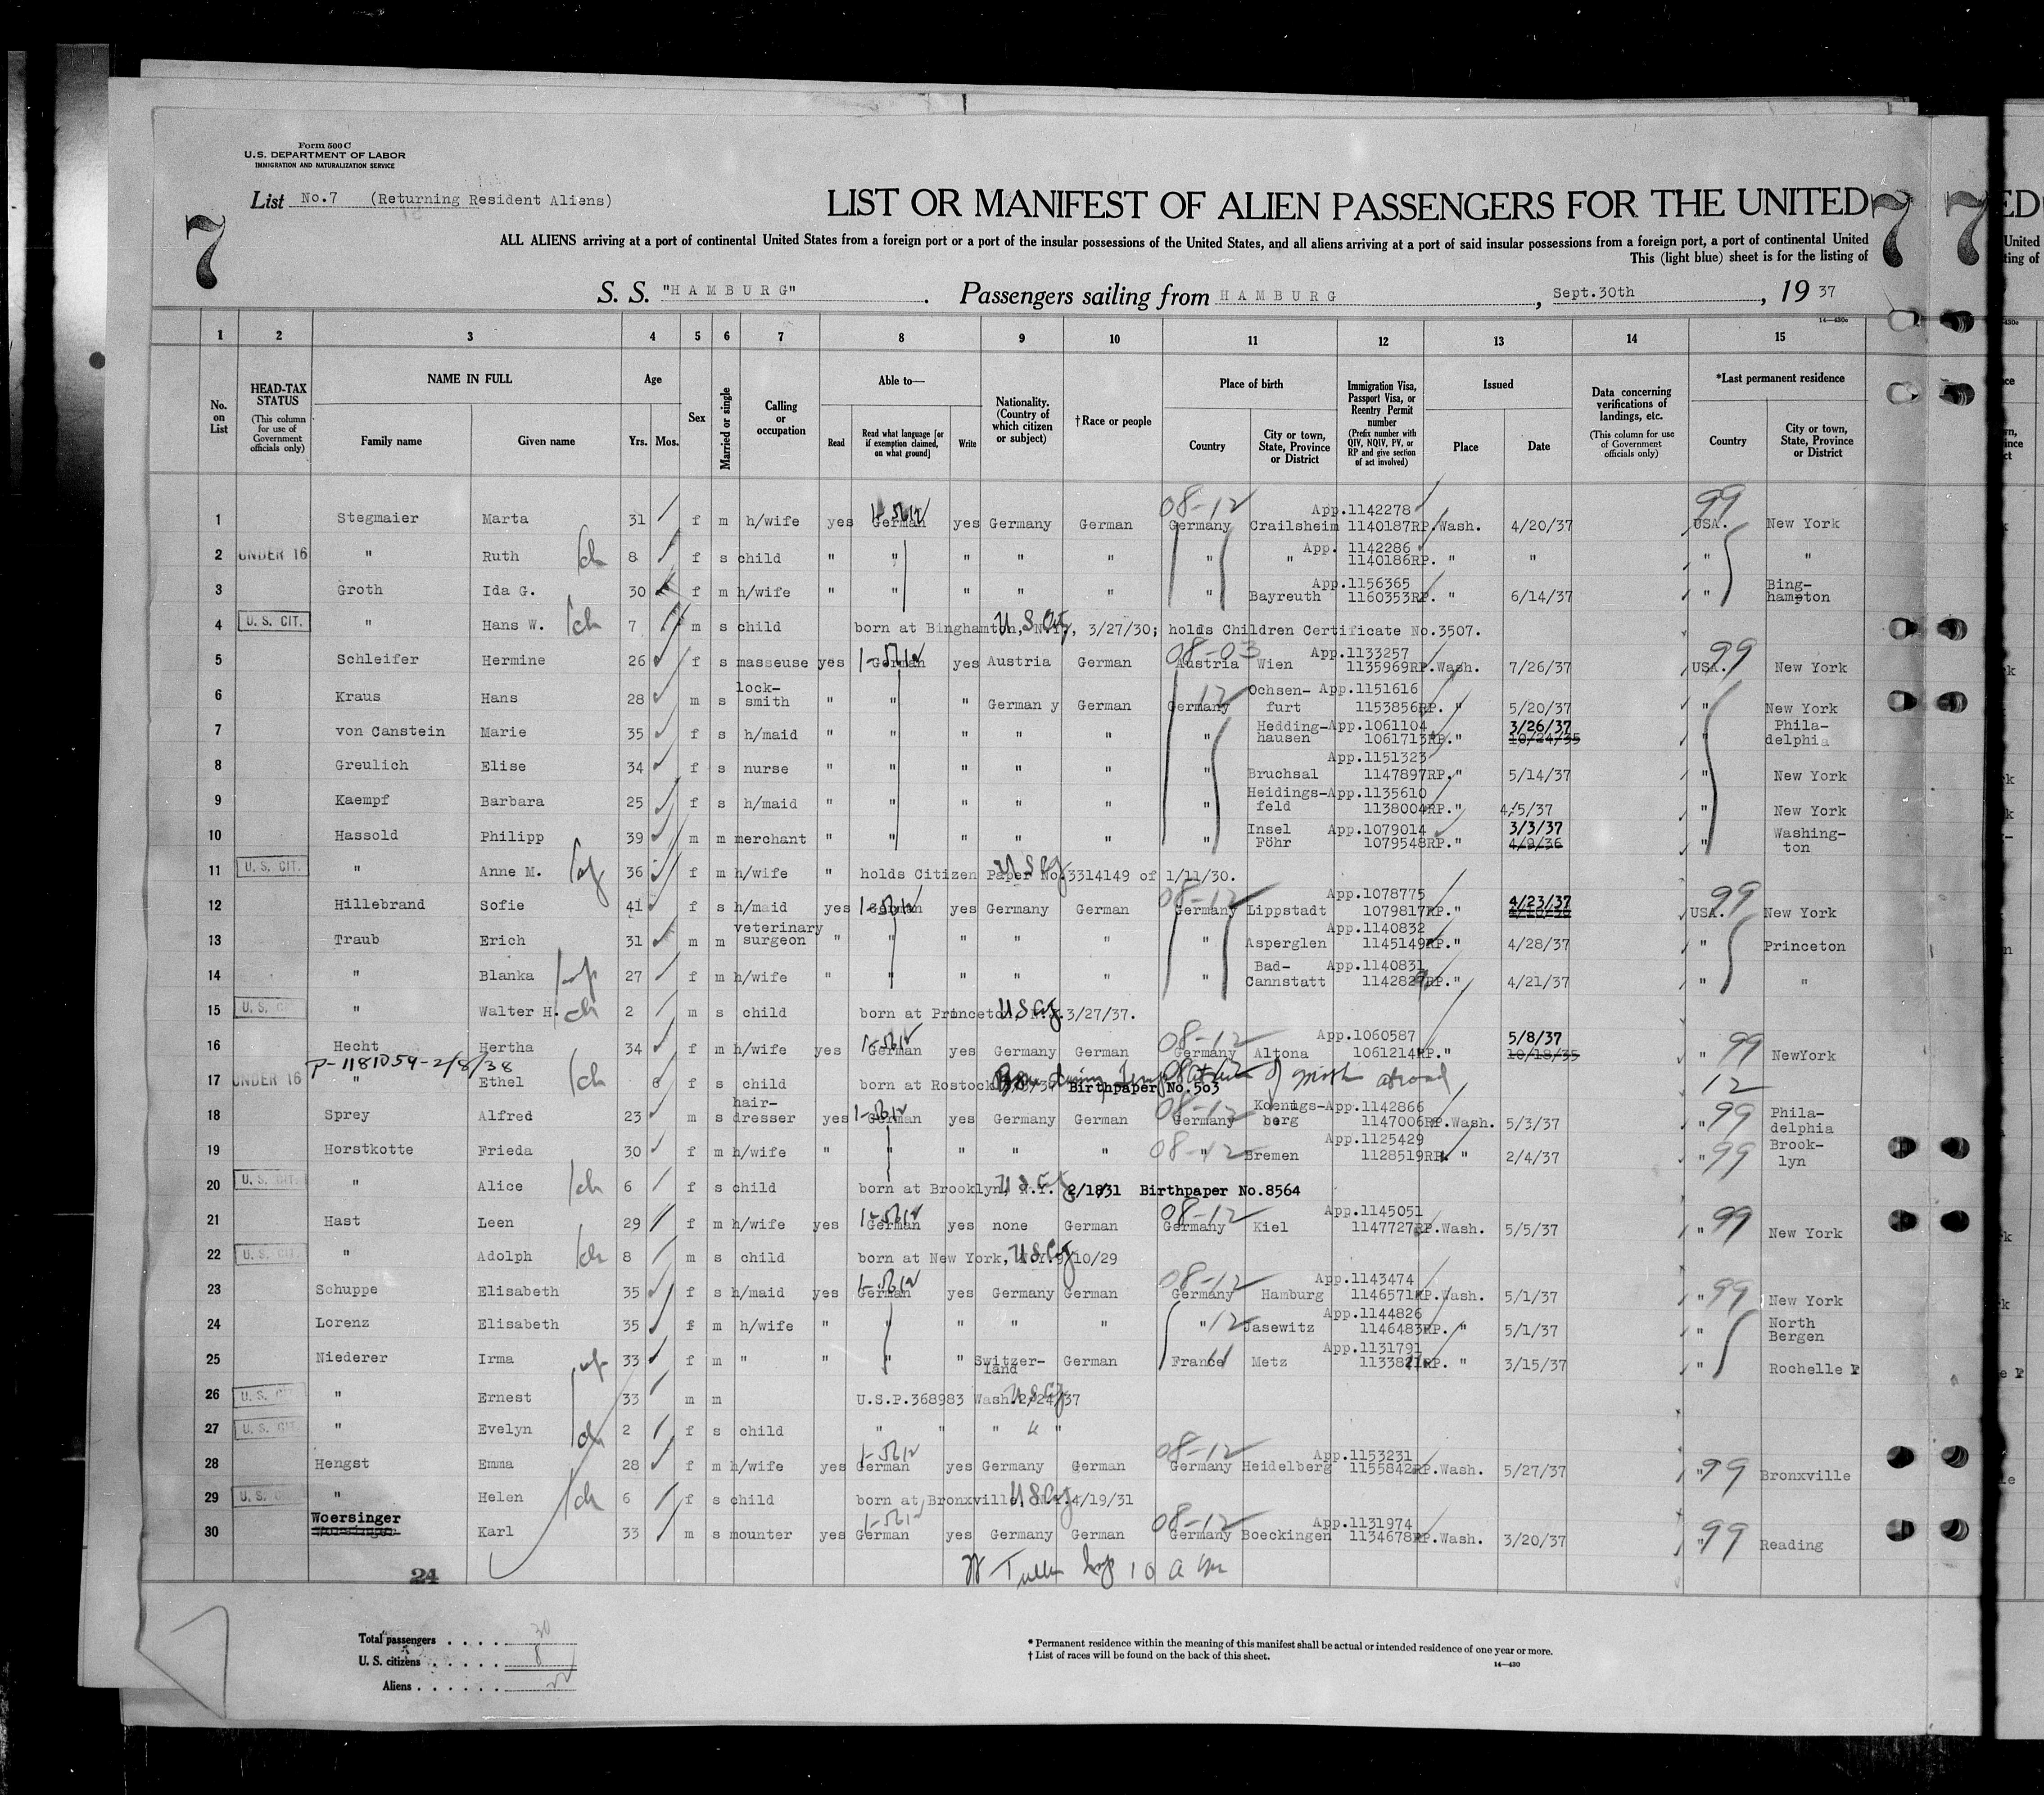 Form 500 C
U.S. DEPARTMENT OF LABOR
IMMIGRATION AND NATURALIZATION SERVICE
List No.7 (Returning Resident Aliens)
LIST OR MANIFEST OF ALIEN PASSENGERS FOR THE UNITED
7 7 7 ED
ALL ALIENS arriving at a port of continental United States from a foreign port or a port of the insular possessions of the United States, and all aliens arriving at a port of said insular possessions from a foreign port, a port of continental United
This (light blue) sheet is for the listing of
S. S. "HAMBURG" . Passengers sailing from HAMBURG , Sept.30th , 19 37
14—430c
1 2 3 4 5 6 7 8 9 10 11 12 13 14 15
No. on List
HEAD-TAX STATUS (This column for use of Government officials only)
NAME IN FULL Family name Given name
Age Yrs. Mos.
Sex
Married or single
Calling or occupation
Able to— Read Read what language [or if exemption claimed, on what ground] Write
Nationality. (Country of which citizen or subject)
† Race or people
Place of birth Country City or town, State, Province or District
Immigration Visa, Passport Visa, or Reentry Permit number (Prefix number with QIV, NQIV, PV, or RP and give section of act involved)
Issued Place Date
Data concerning verifications of landings, etc. (This column for use of Government officials only)
*Last permanent residence Country City or town, State, Province or District
1 Stegmaier Marta 31 f m h/wife yes German yes Germany German 08-12 Germany Crailsheim App.1142278 1140187RP. Wash. 4/20/37 99 USA. New York
2 UNDER 16 " Ruth ch 8 f s child " " " " " " " App. 1142286 1140186RP. " " " "
3 Groth Ida G. 30 f m h/wife " " " " " " Bayreuth App.1156365 1160353RP. " 6/14/37 " Bing-hampton
4 U. S. CIT. " Hans W. ch 7 m s child born at Binghamton, N.Y., 3/27/30; holds Children Certificate No.3507.
5 Schleifer Hermine 26 f s masseuse yes German yes Austria German 08-03 Austria Wien App.1133257 1135969RP. Wash. 7/26/37 99 USA. New York
6 Kraus Hans 28 m s lock-smith " " " German y German 12 Germany Ochsen-furt App.1151616 1153856RP. " 5/20/37 " New York
7 von Canstein Marie 35 f s h/maid " " " " " " Hedding-hausen App.1061104 1061713RP. " 3/26/37 10/24/35 " Phila-delphia
8 Greulich Elise 34 f s nurse " " " " " " Bruchsal App.1151323 1147897RP. " 5/14/37 " New York
9 Kaempf Barbara 25 f s h/maid " " " " " " Heidings-feld App.1135610 1138004RP. " 4/5/37 " New York
10 Hassold Philipp 39 m m merchant " " " " " " Insel Föhr App.1079014 1079548RP. " 3/3/37 4/9/36 " Washing-ton
11 U. S. CIT. " Anne M. 36 f m h/wife " holds Citizen Paper No.3314149 of 1/11/30.
12 Hillebrand Sofie 41 f s h/maid yes German yes Germany German 08-12 Germany Lippstadt App.1078775 1079817RP. " 4/23/37 99 USA. New York
13 Traub Erich 31 m m veterinary surgeon " " " " " " Asperglen App.1140832 1145149RP. " 4/28/37 " Princeton
14 " Blanka 27 f m h/wife " " " " " " Bad-Cannstatt App.1140831 RP. " 4/21/37 " "
15 " Walter H. ch 2 m s child born at Princeton, 3/27/37.
16 Hecht Hertha 34 f m h/wife yes German yes Germany German 08-12 Germany Altona App.1060587 1061214RP. " 5/8/37 10/18/35 " 99 NewYork
P-1181059-2/8/38
17 UNDER 16 " Ethel ch 6 f s child born at Rostock Birthpaper No.503 abroad 12
18 Sprey Alfred 23 m s hair-dresser yes German yes Germany German 08-12 Germany Koenigs-berg App.1142866 1147006RP. Wash. 5/3/37 " 99 Phila-delphia
19 Horstkotte Frieda 30 f m h/wife " " " " " 08-12 " Bremen App.1125429 1128519RP. " 2/4/37 " 99 Brook-lyn
20 U. S. CIT. " Alice ch 6 f s child born at Brooklyn, N.Y. Birthpaper No.8564
21 Hast Leen 29 f m h/wife yes German yes none German 08-12 Germany Kiel App.1145051 1147727RP. Wash. 5/5/37 " 99 New York
22 U. S. CIT. " Adolph ch 8 m s child born at New York, N.Y. 9/10/29
23 Schuppe Elisabeth 35 f s h/maid yes German yes Germany German 08-12 Germany Hamburg App.1143474 1146571RP. Wash. 5/1/37 " 99 New York
24 Lorenz Elisabeth 35 f m h/wife " " " " " " 12 Jasewitz App.1144826 1146483RP. " 5/1/37 " North Bergen
25 Niederer Irma 33 f m " " " " Switzer-land German France Metz App.1131791 RP. " 3/15/37 " Rochelle P
26 U. S. CIT " Ernest 33 m m U.S.P.368983 Wash. 2/24/37
27 U. S. CIT " Evelyn ch 2 f s child " " " "
28 Hengst Emma 28 f m h/wife yes German yes Germany German 08-12 Germany Heidelberg App.1153231 1155842RP. Wash. 5/27/37 " 99 Bronxville
29 U. S. " Helen ch 6 f s child born at Bronxville, N.Y. 4/19/31
30 Woersinger Karl 33 m s mounter yes German yes Germany German 08-12 Germany Boeckingen App.1131974 1134678RP. Wash. 3/20/37 " 99 Reading
24
Total passengers . . . . . 30
U. S. citizens . . . . . . 8
Aliens . . . . . . 22
* Permanent residence within the meaning of this manifest shall be actual or intended residence of one year or more.
† List of races will be found on the back of this sheet.
14—430